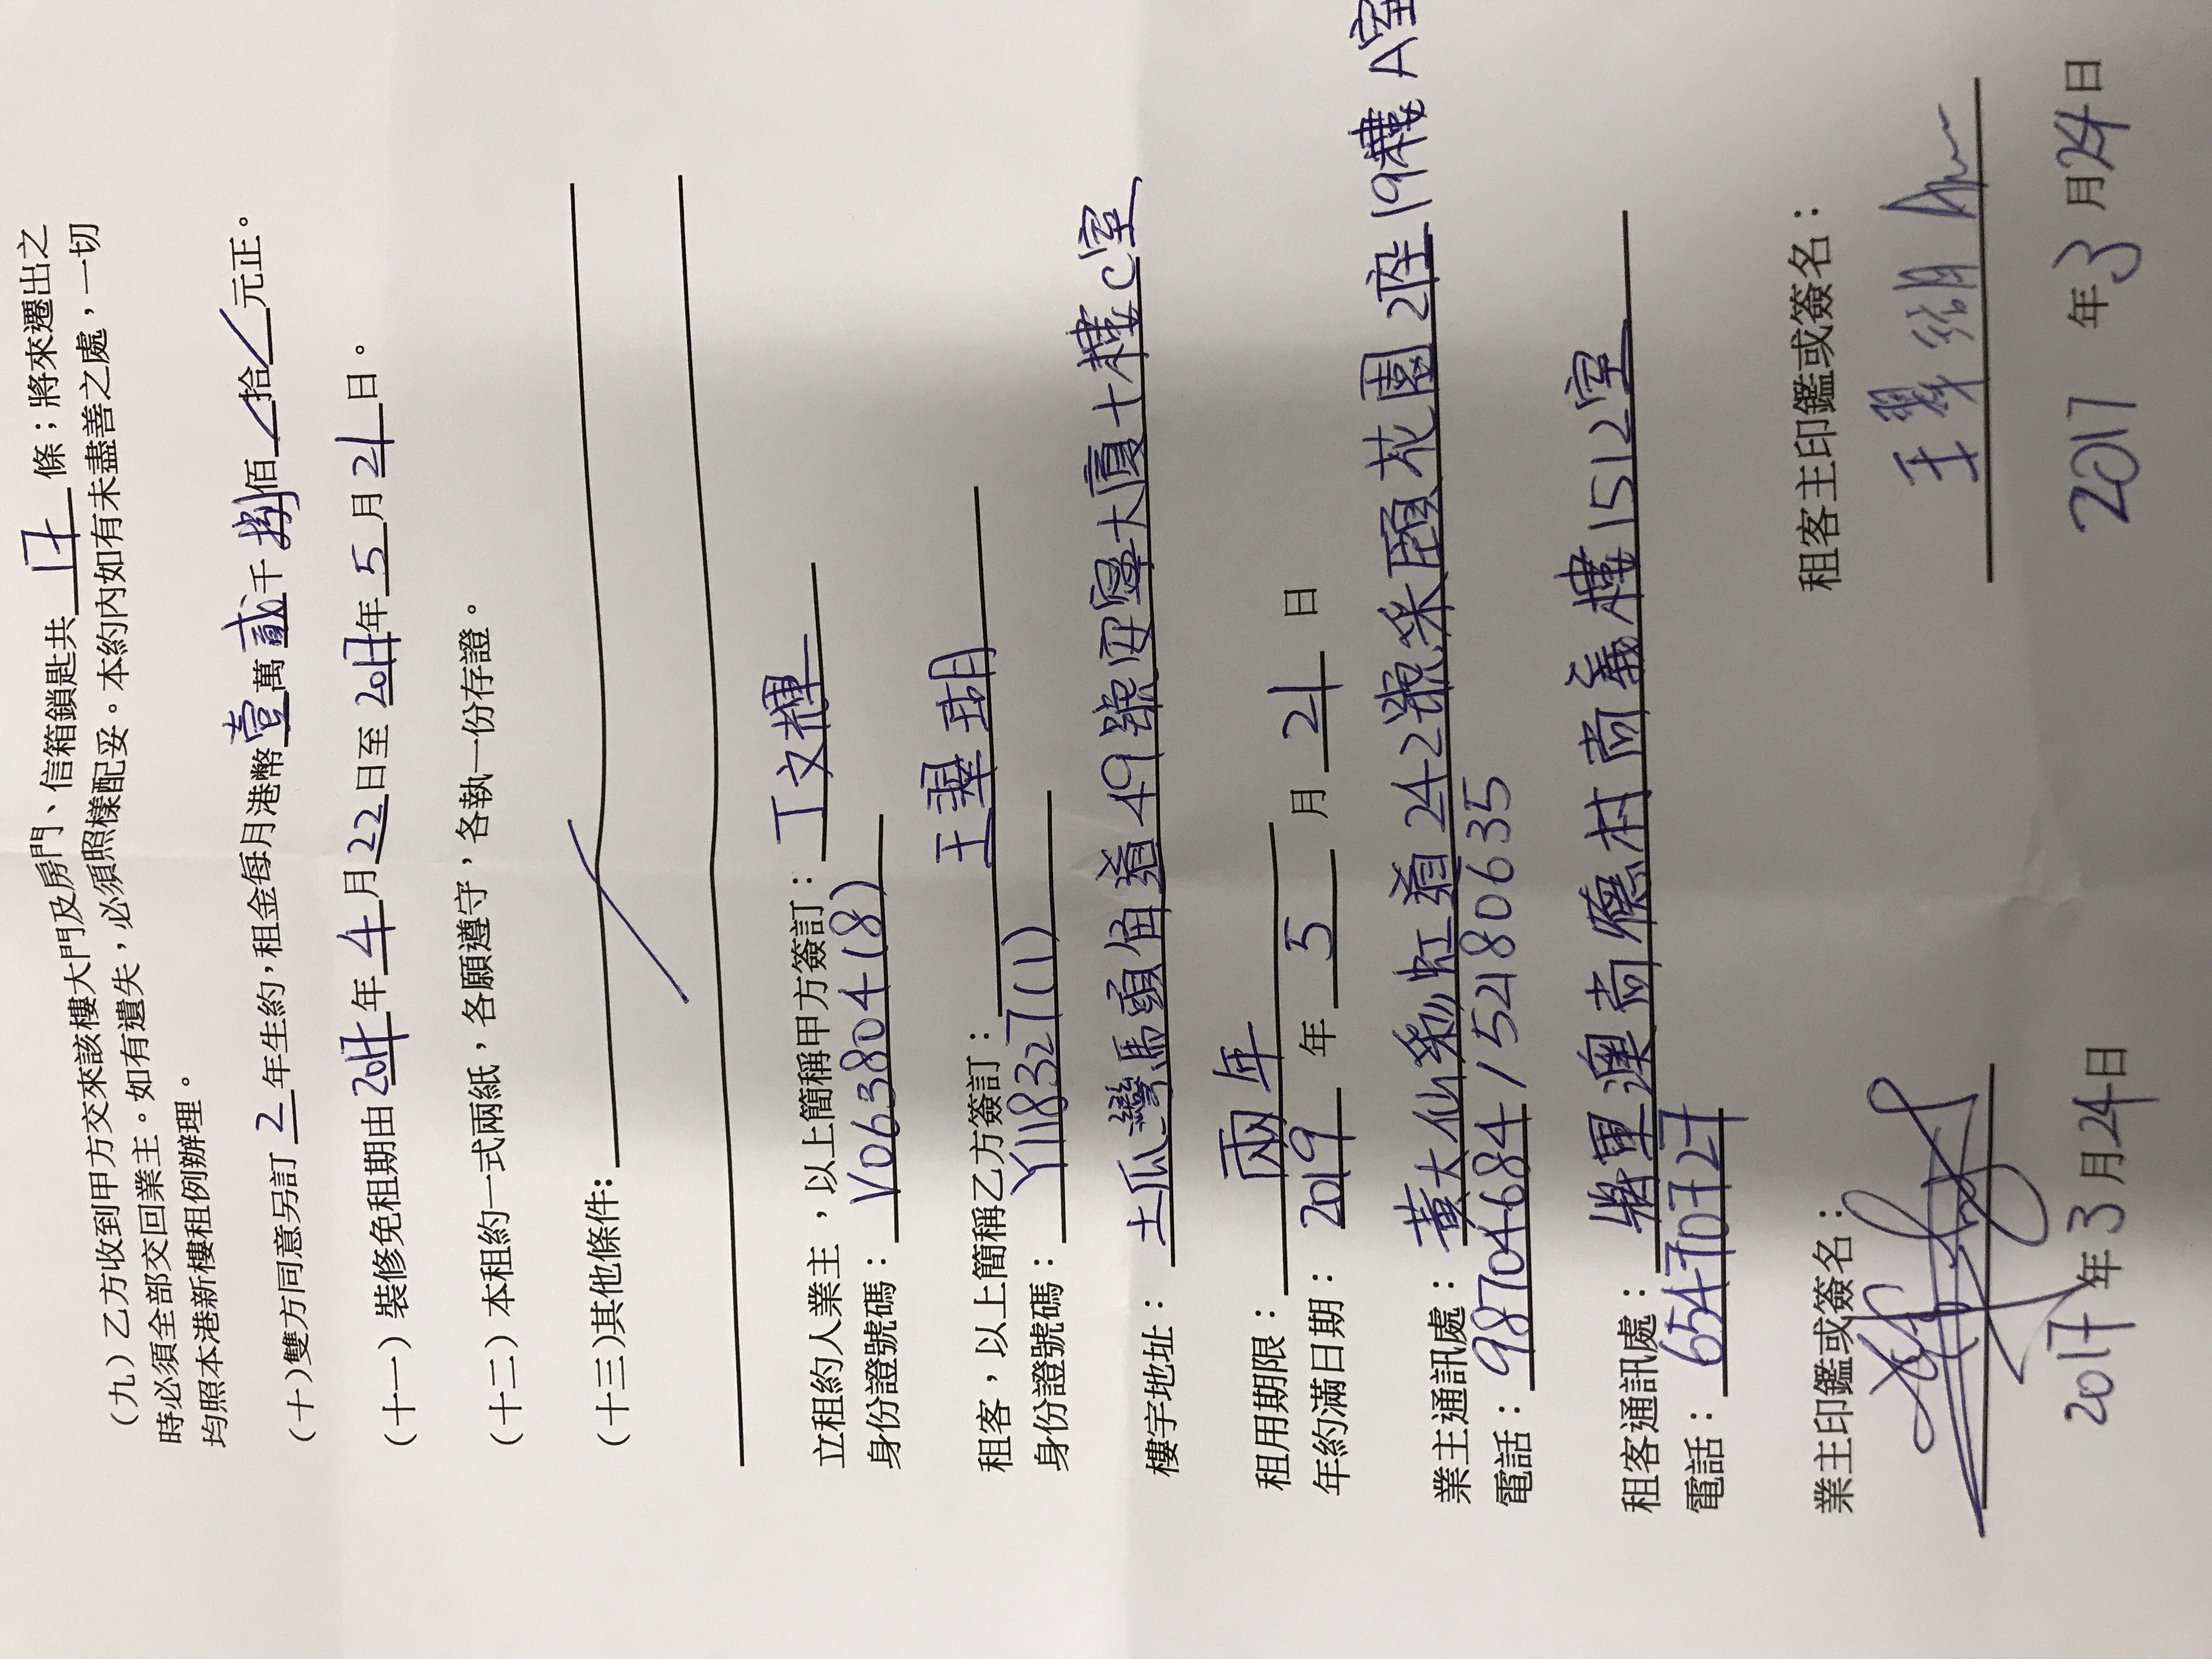 （九）乙方收到甲方交來該樓大門及房門、信箱鎖匙共 17 條；將來遷出之
時必須全部交回業主。如有遺失，必須照樣配妥。本約內如有未盡善之處，一切
均照本港新樓租例辦理。
（十）雙方同意另訂 2 年生約，租金每月港幣壹萬貳千捌佰／拾／元正。
（十一）裝修免租期由2017年4月22日至2017年5月21日。
（十二）本租約一式兩紙，各願遵守，各執一份存證。
（十三）其他條件:
立租約人業主 ，以上簡稱甲方簽訂：丁文輝
身份證號碼：V063804(8)
租客，以上簡稱乙方簽訂：王翠瑚
身份證號碼：Y118327(1)
樓宇地址：土瓜灣馬頭角道49號安寧大廈七樓C室
租用期限：兩年
年約滿日期：2019年5月21日
業主通訊處：黃大仙彩虹道242號采頤花園2座19樓A室
電話：98704684/15218080635
租客通訊處：將軍澳尚德村尚義樓1512室
電話：65470727
業主印鑑或簽名： 租客主印鑑或簽名：
王翠瑚
2017年3月24日 2017年3月24日